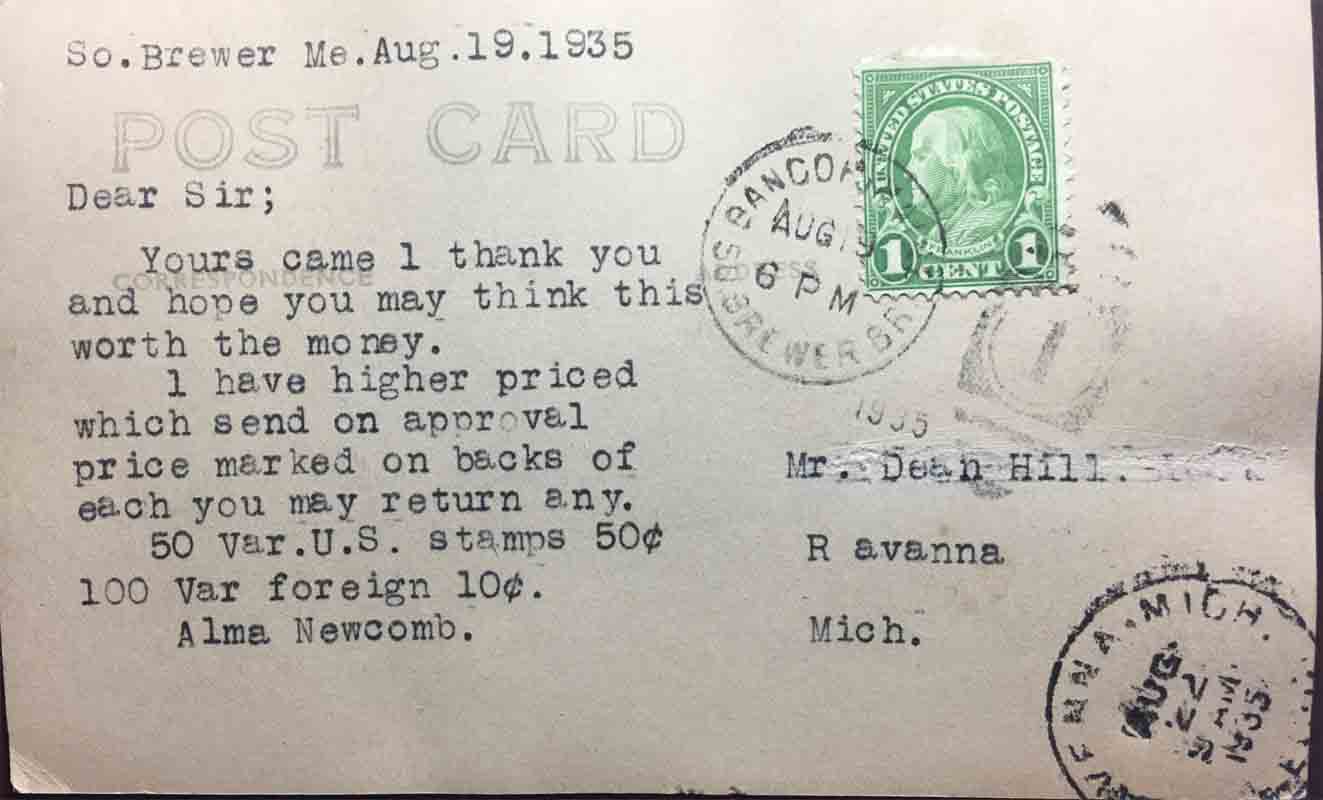 So.Brewer Me.Aug.19.1935
POST CARD
Dear Sir;
Yours came 1 thank you
CORRESPONDENCE
ADDRESS
and hope you may think this
worth the money.
1 have higher priced
which send on approval
price marked on backs of
each you may return any.
50 Var.U.S. stamps 50¢
100 Var foreign 10¢.
Alma Newcomb.
UNITED STATES POSTAGE
FRANKLIN
1 CENT 1
BANGOR
AUG
6 PM
SO BREWER BR
1935
1
Mr. Dean Hill.
R avanna
Mich.
MICH.
AUG
AM
1935